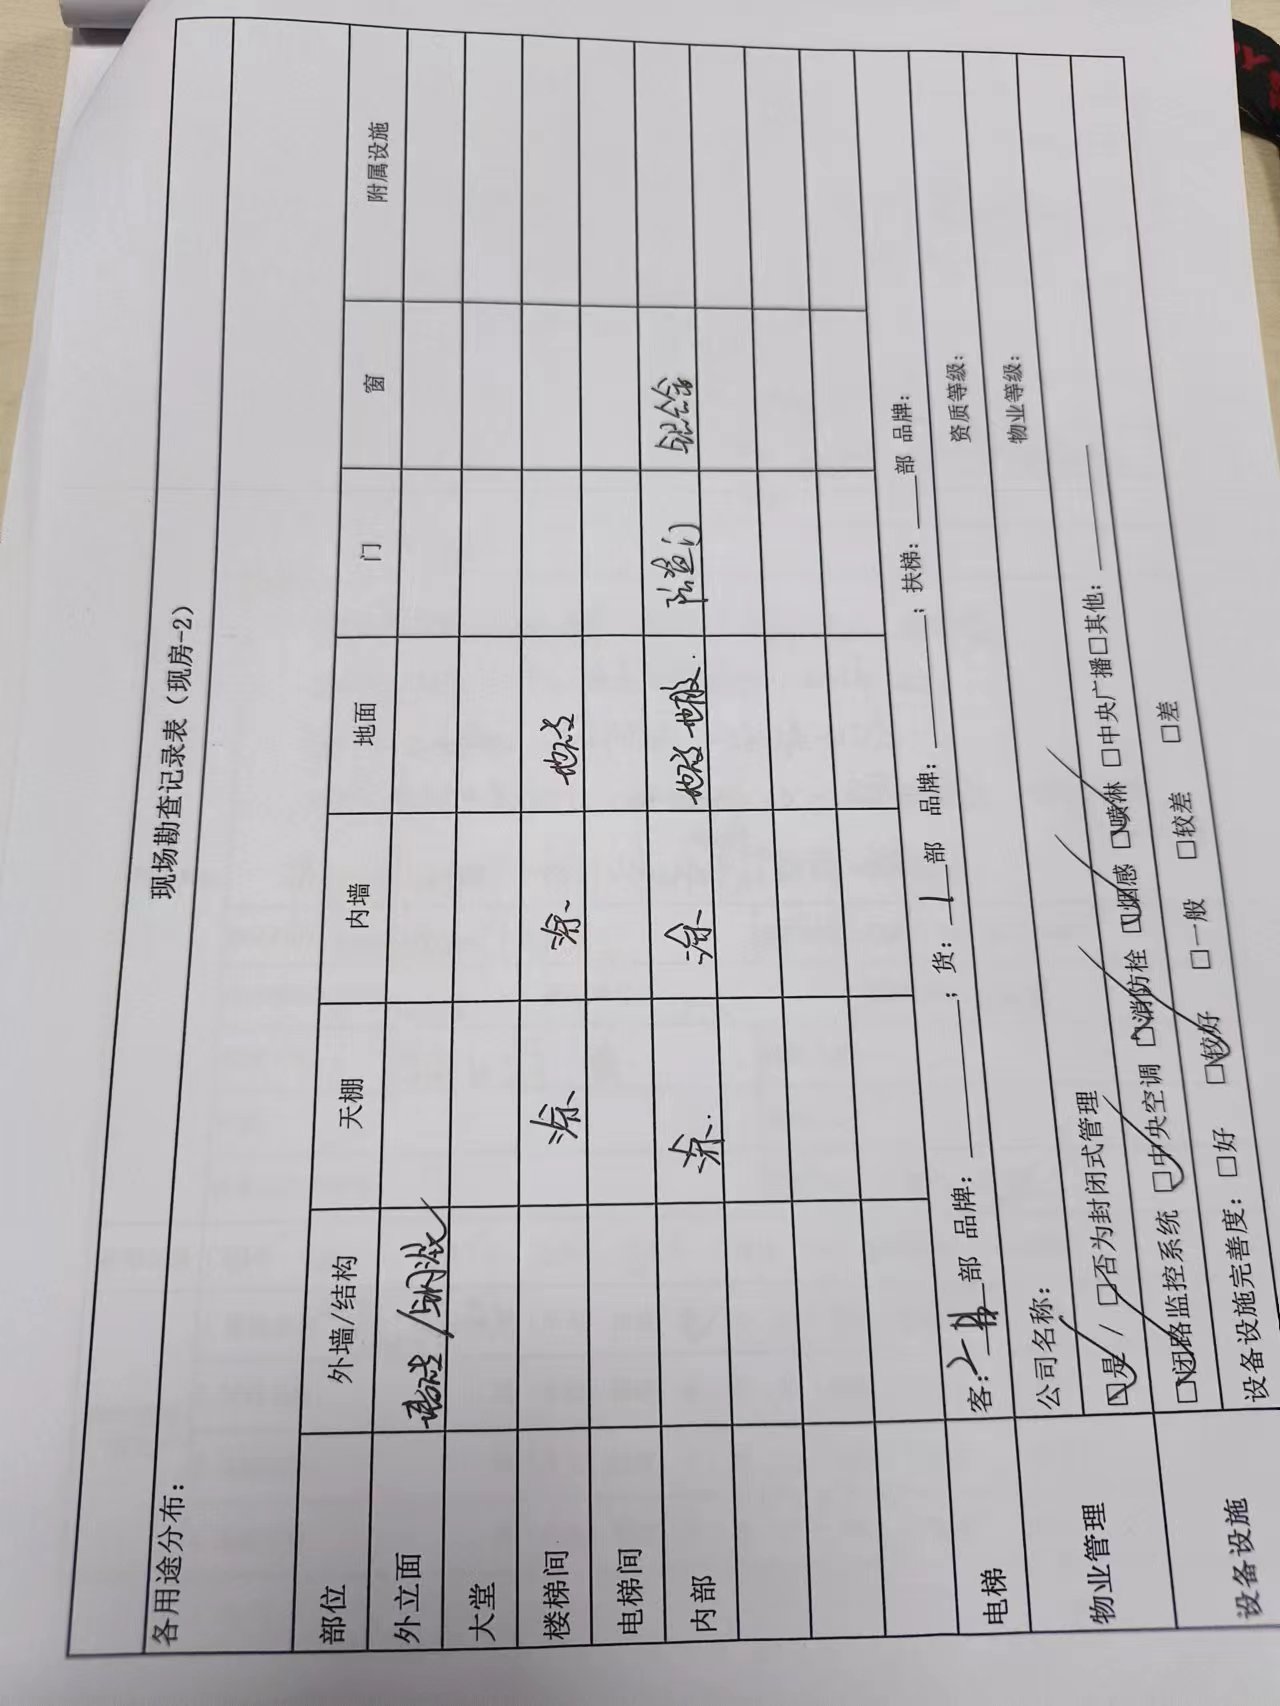 现场勘查记录表（现房-2）
各用途分布：
部位 外墙/结构 天棚 内墙 地面 门 窗 附属设施
外立面 /钢混
大堂
楼梯间 涂 涂 地砖
电梯间
内部 涂 涂 地砖 地胶 防盗门 铝合金
电梯 客：部 品牌：；货：1部 品牌：；扶梯：部 品牌：
物业管理 公司名称： 资质等级：
☑是 / □否为封闭式管理 物业等级：
设备设施 ☑闭路监控系统 ☑中央空调 ☑消防栓 ☑烟感 ☑喷淋 □中央广播□其他：
设备设施完善度：□好 ☑较好 □一般 □较差 □差